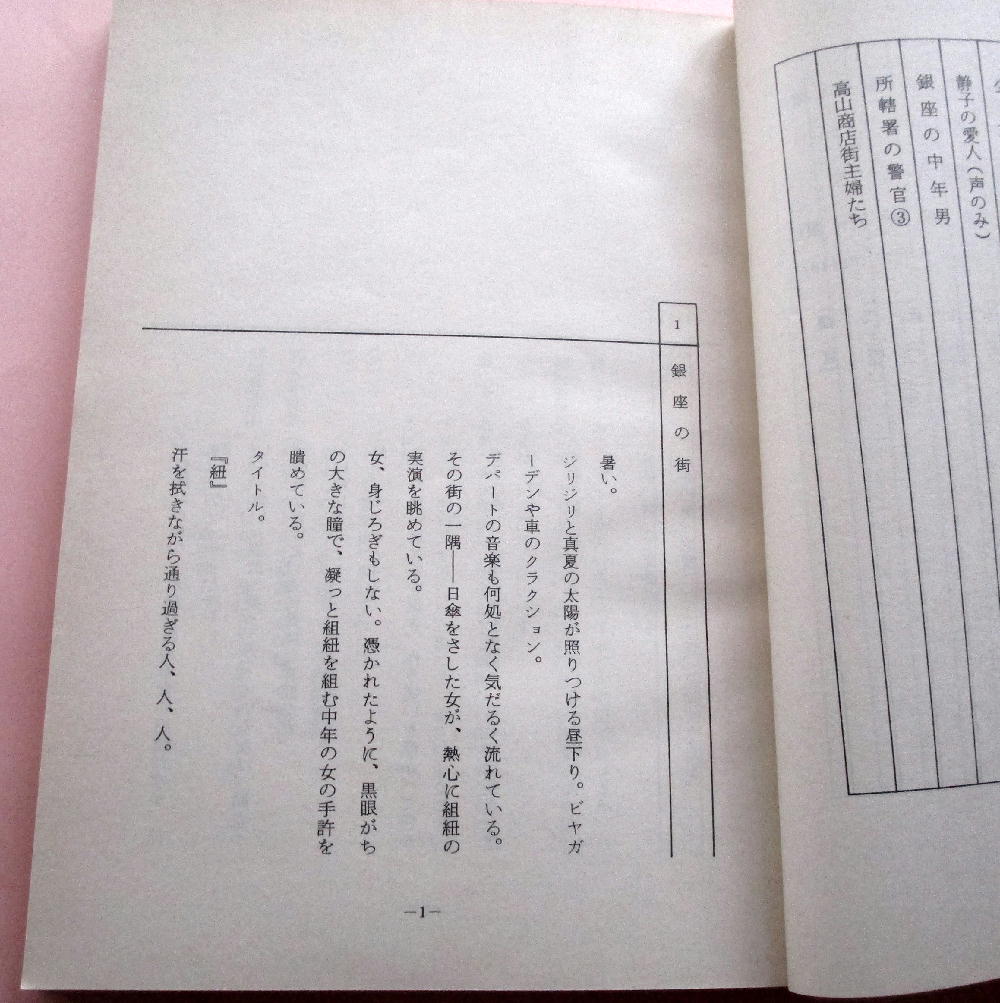 静子の愛人(声のみ)
銀座の中年男
所轄署の警官③
高山商店街主婦たち
1
銀座の街
暑い。
ジリジリと真夏の太陽が照りつける昼下り。ビヤガ
ーデンや車のクラクション。
デパートの音楽も何処となく気だるく流れている。
その街の一隅――日傘をさした女が、熱心に組紐の
実演を眺めている。
女、身じろぎもしない。憑かれたように、黒眼がち
の大きな瞳で、凝っと組紐を組む中年の女の手許を
瞶めている。
タイトル。
『紐』
汗を拭きながら通り過ぎる人、人、人。
—1—